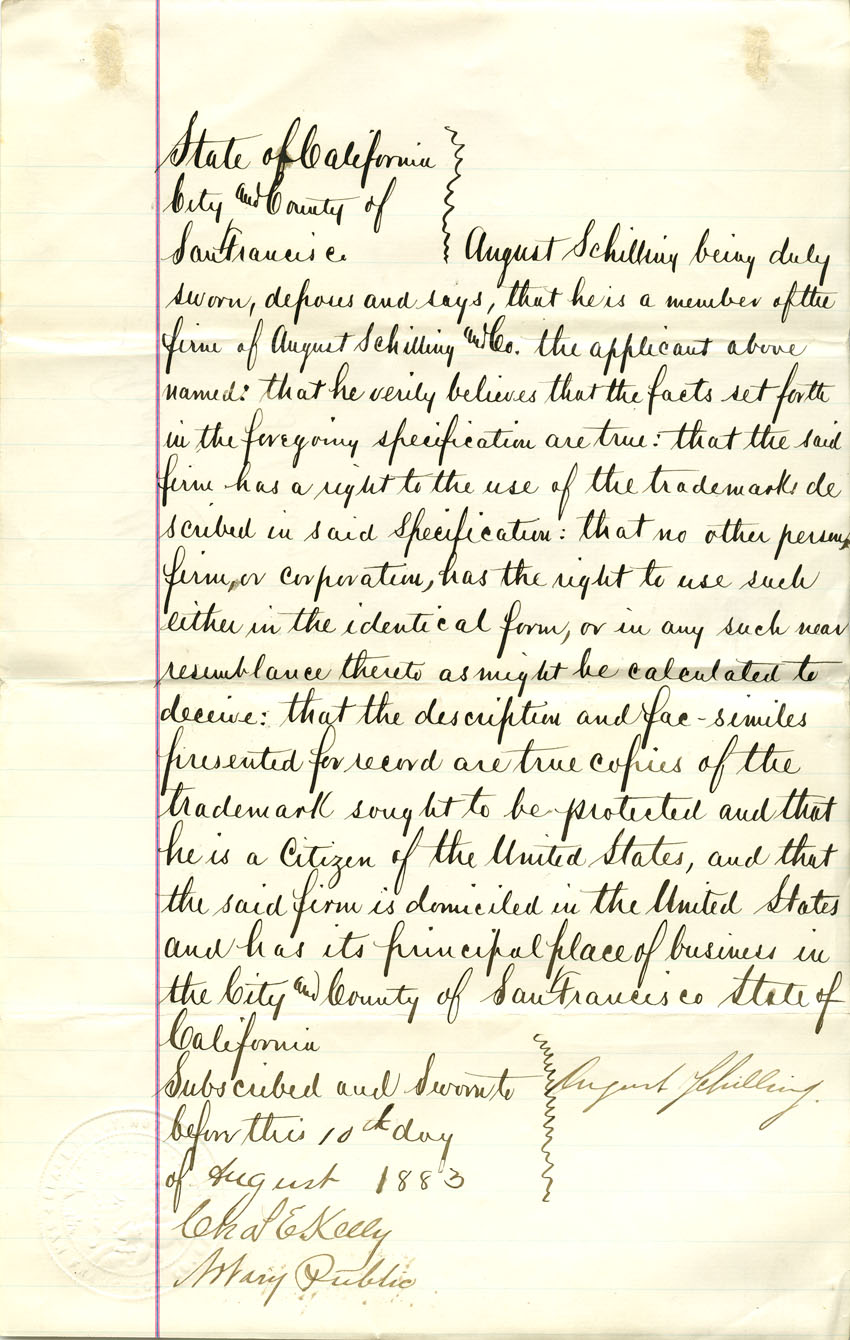 State of California
City and County of
San Francisco
August Schilling being duly
sworn, deposes and says, that he is a member of the
firm of August Schilling and Co. the applicant above
named: that he verily believes that the facts set forth
in the foregoing specification are true: that the said
firm has a right to the use of the trademarks de
scribed in said Specification: that no other person,
firm, or corporation, has the right to use such
either in the identical form, or in any such near
resemblance thereto as might be calculated to
deceive: that the description and fac-similes
presented for record are true copies of the
trademark sought to be protected and that
he is a Citizen of the United States, and that
the said firm is domiciled in the United States
and has its principal place of business in
the City and County of San Francisco State of
California
Subscribed and Sworn to
before this 10th day
of August 1883
August Schilling.
Chas E Kelly
Notary Public